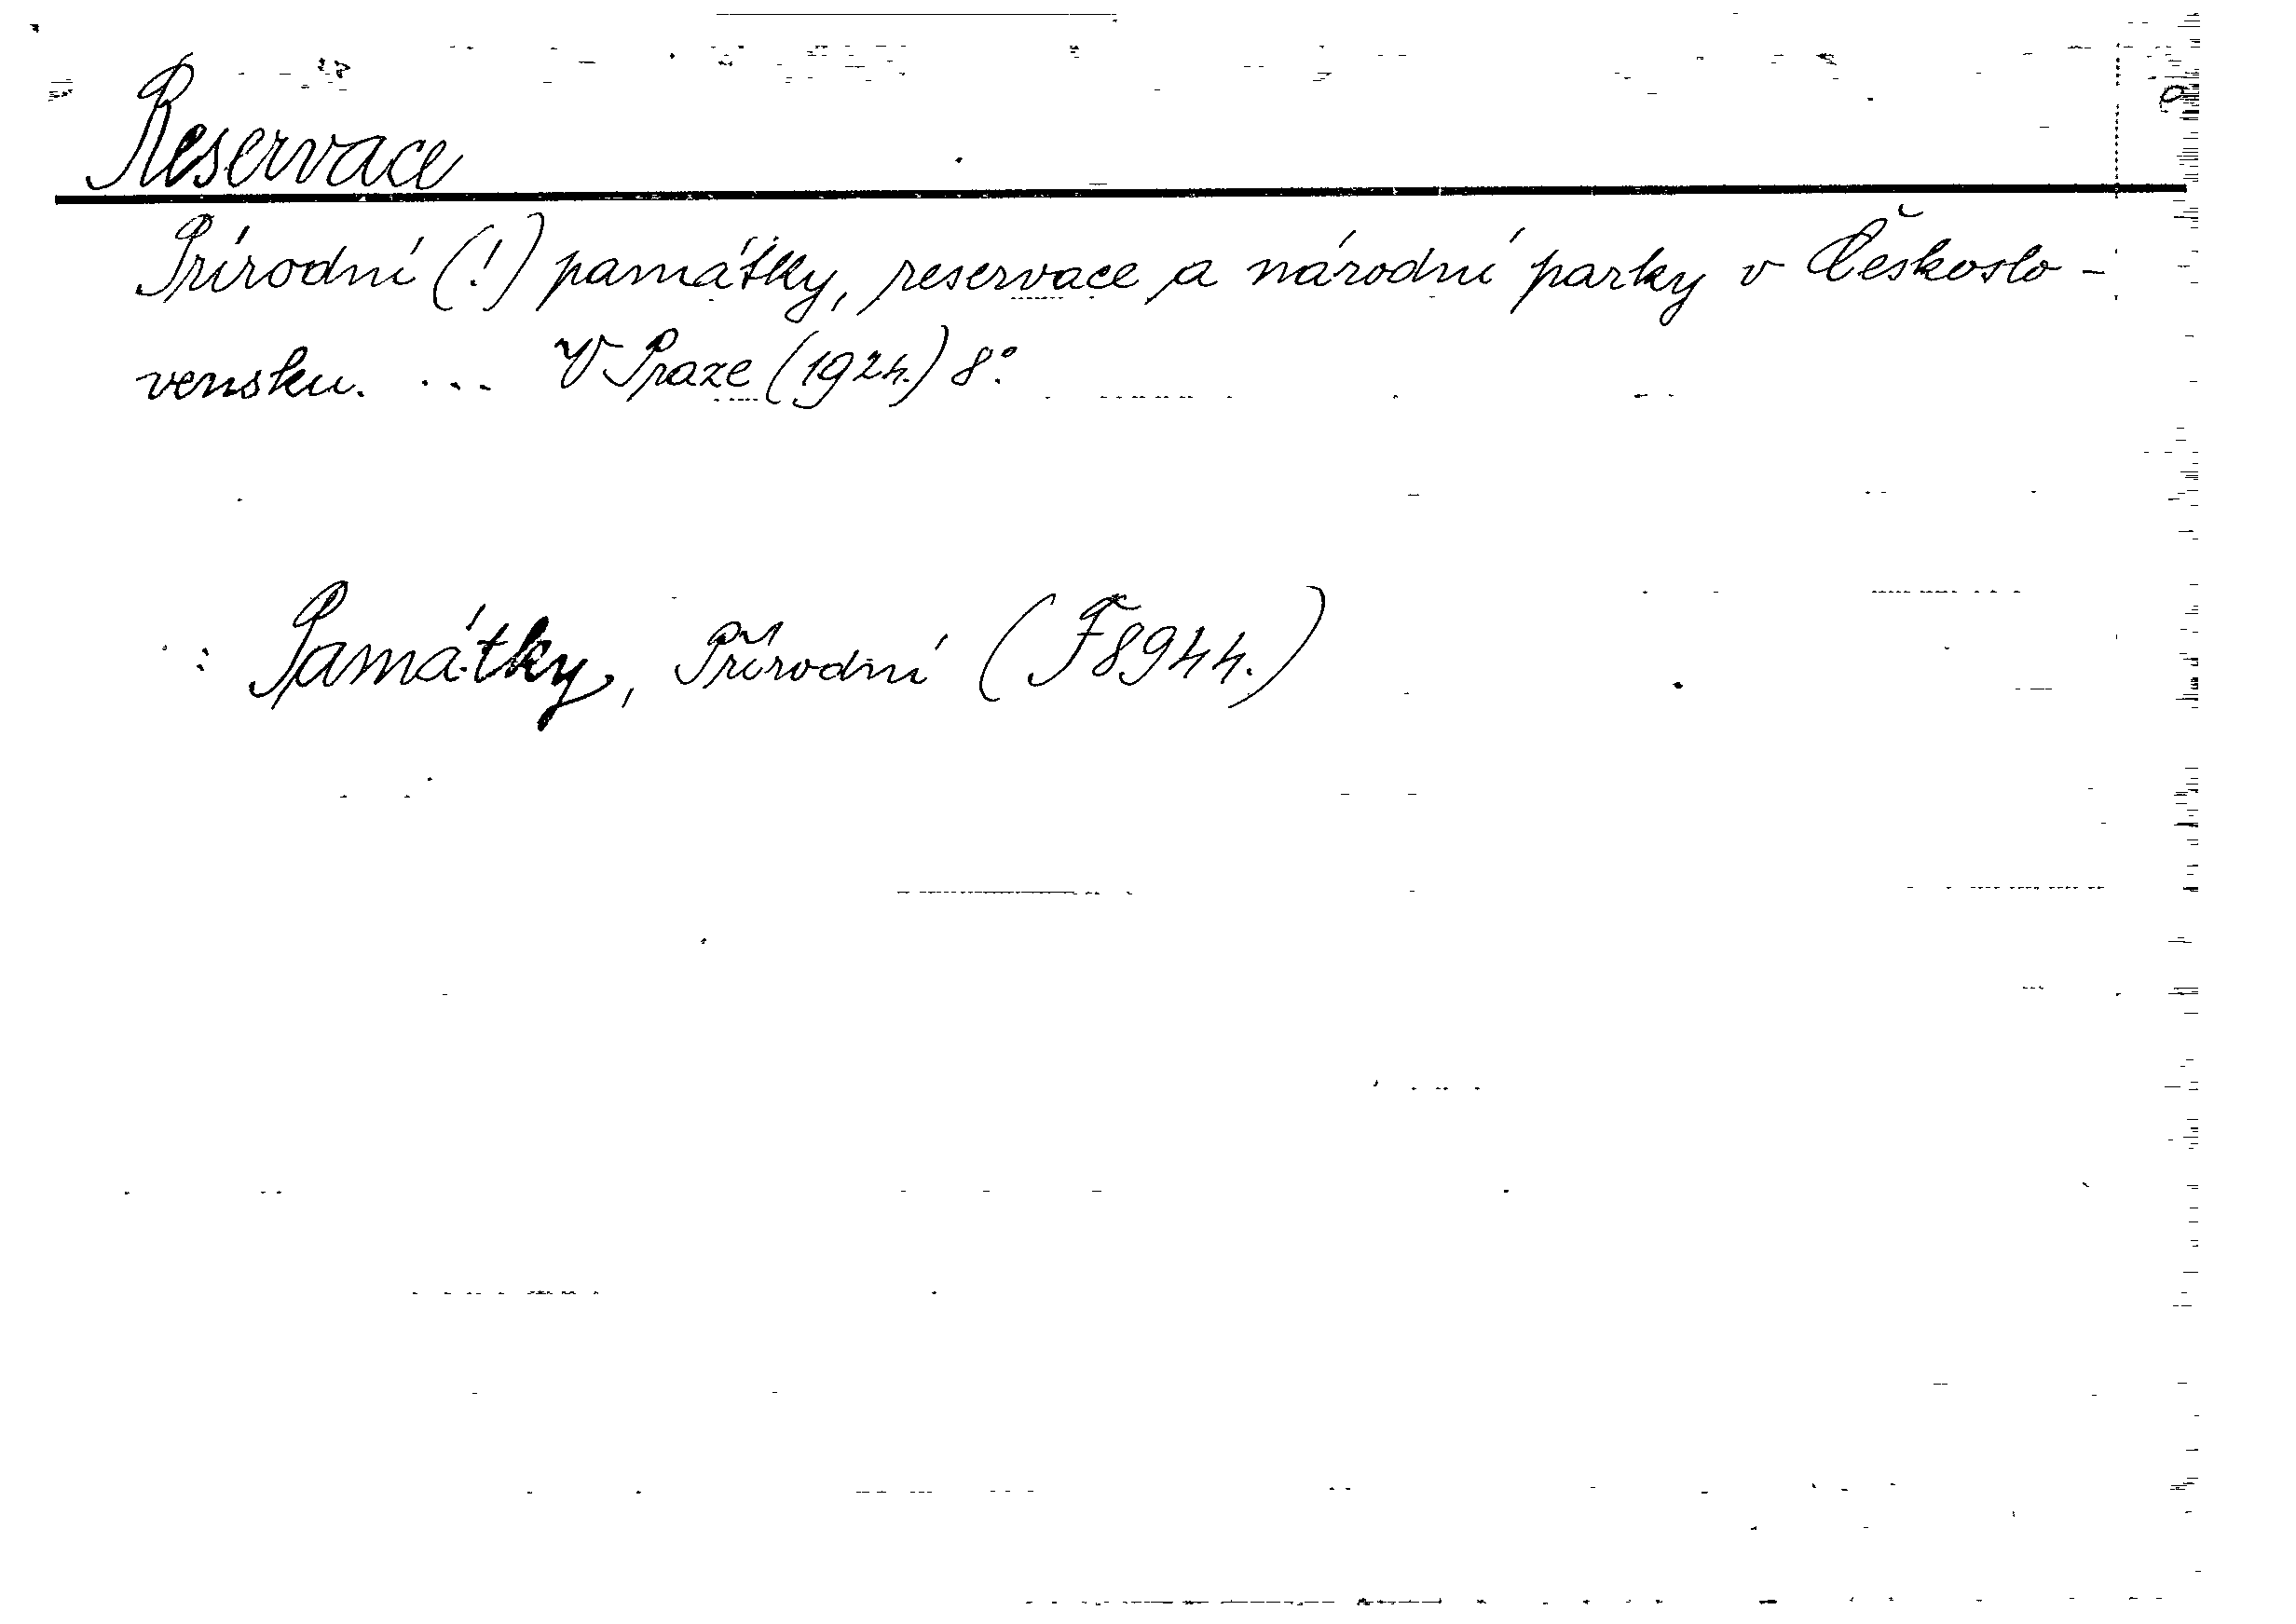 Reservace
Prírodní (!) památky, reservace a národní parky v Českoslo-
vensku. ... V Praze (1924.) 8°.
: Památky, Přírodní (F8944.)